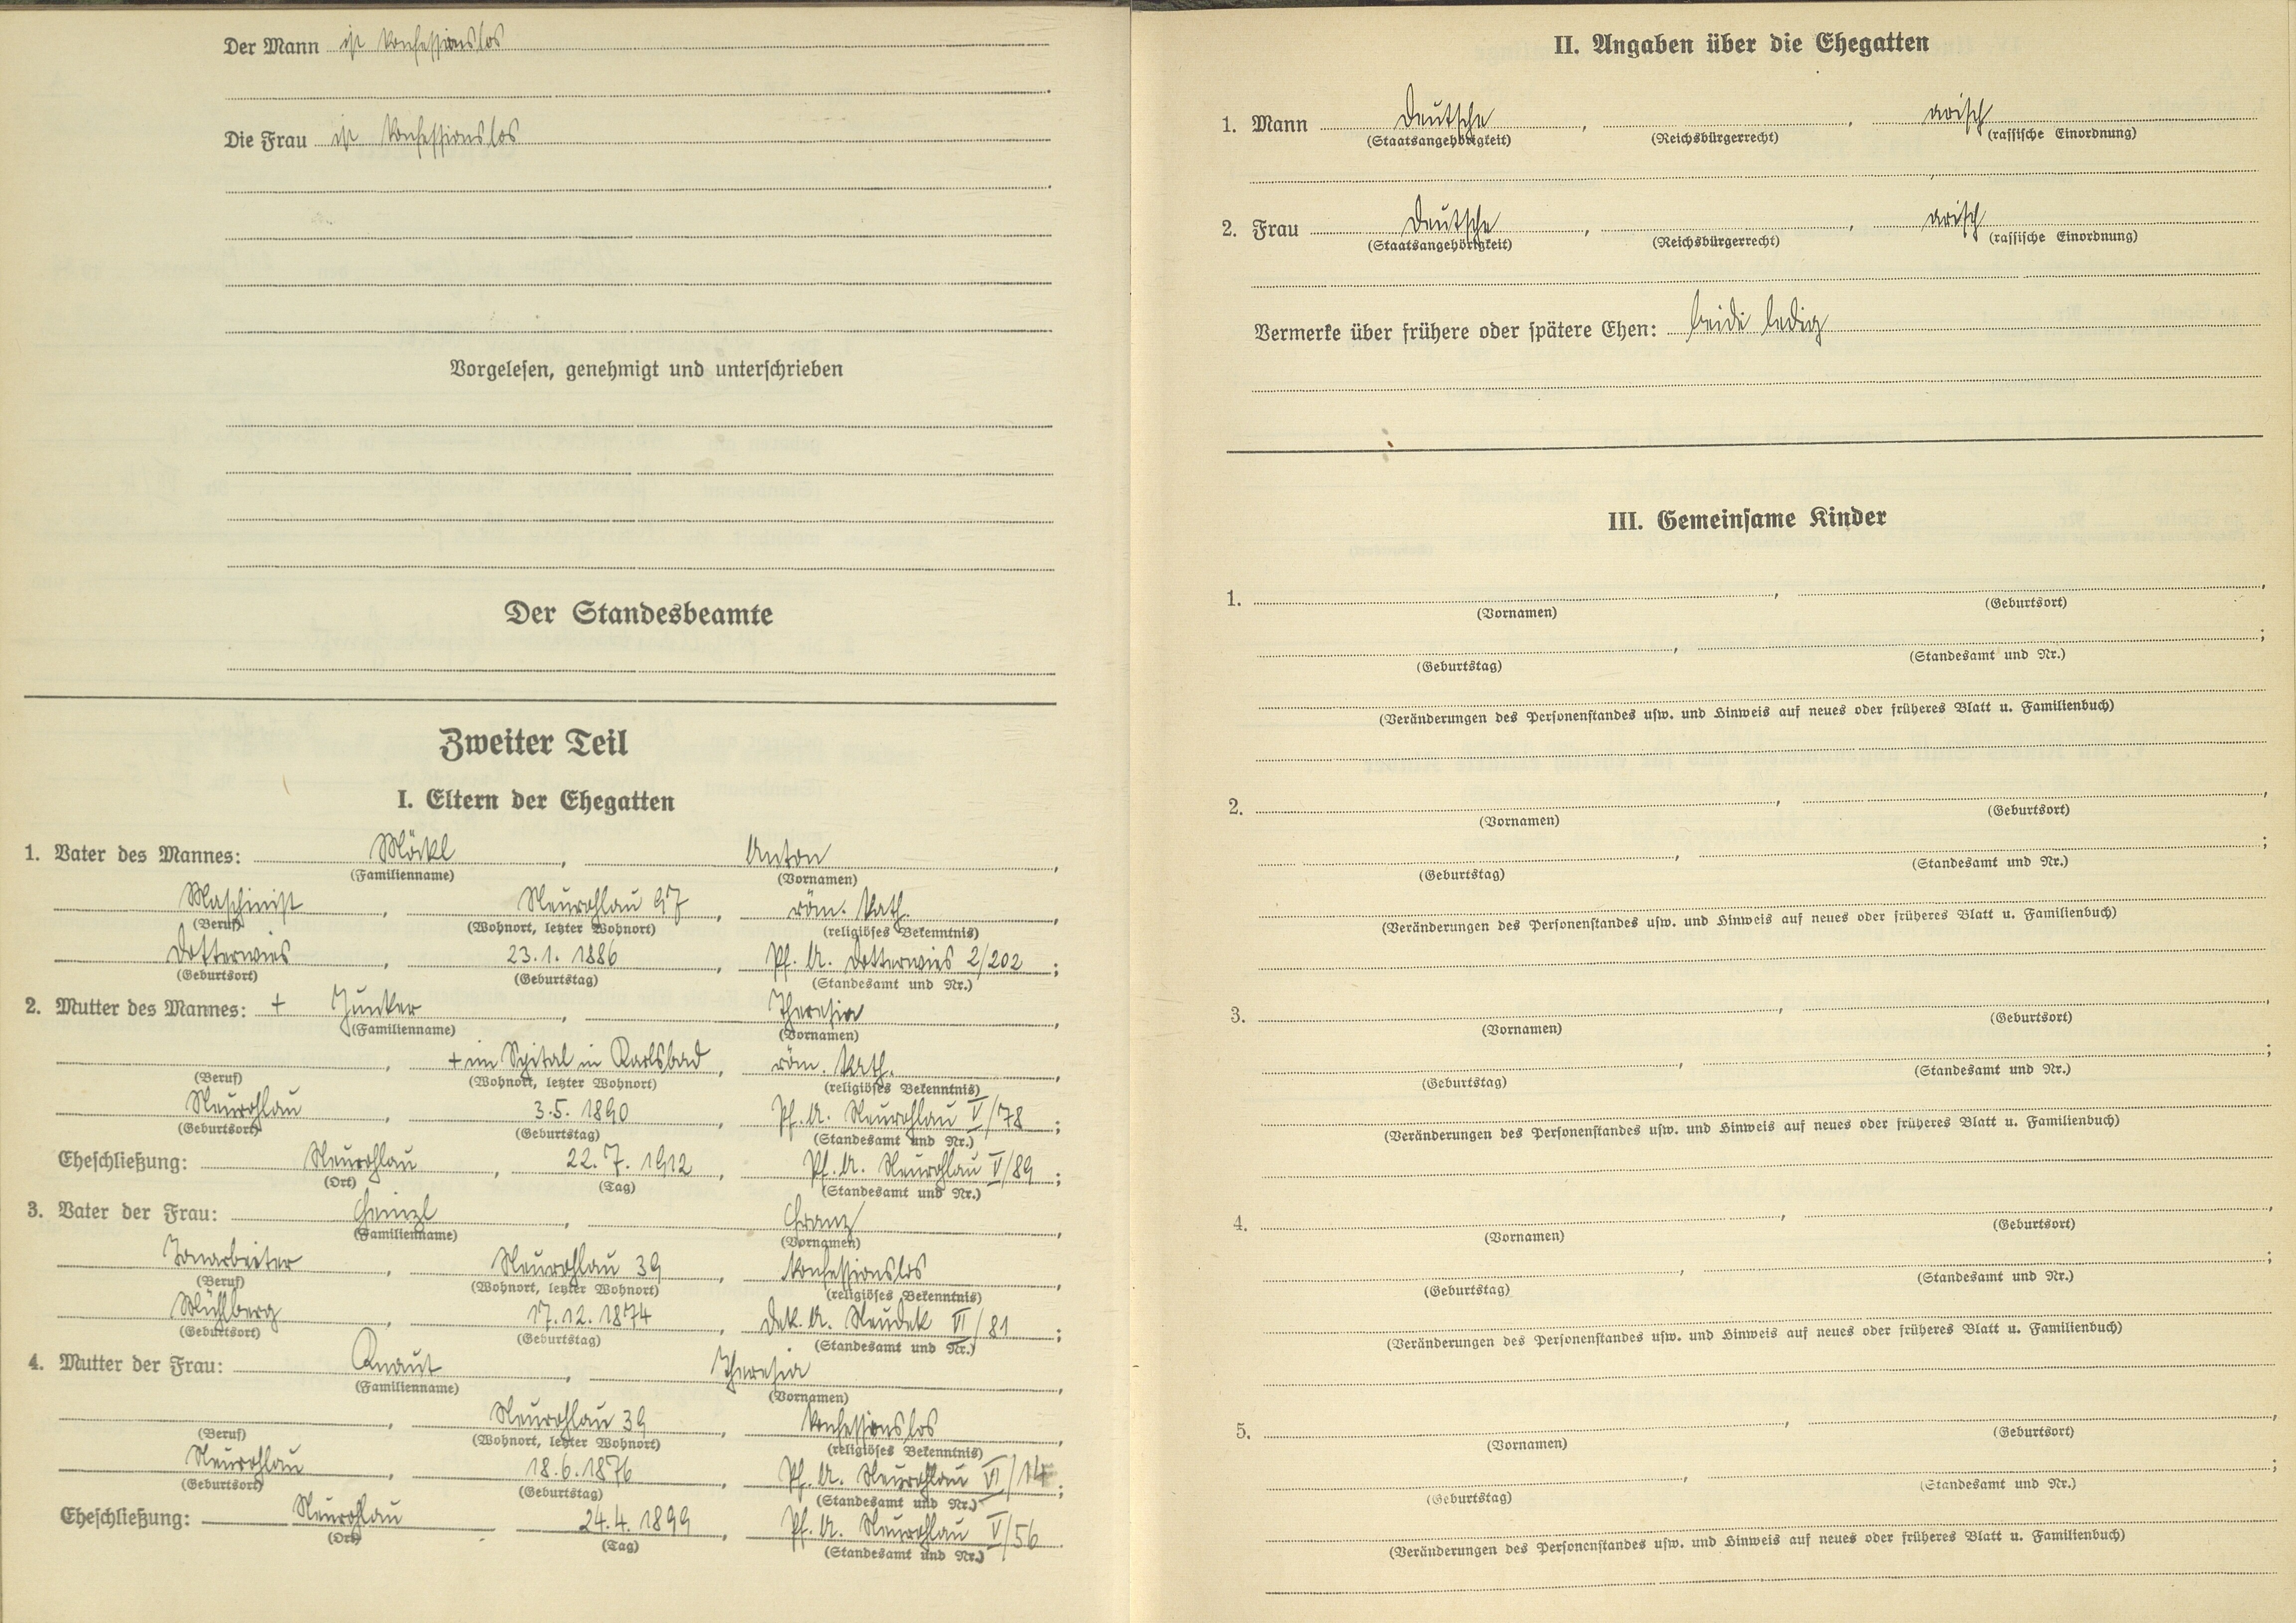 Der Mann ist konfessionslos
Die Frau ist konfessionslos
Vorgelesen, genehmigt und unterschrieben
Der Standesbeamte
Zweiter Teil
I. Eltern der Ehegatten
1. Vater des Mannes: Möckl, Anton,
(Familienname) (Vornamen)
Maschinist, Neurohlau 97, röm. kath.,
(Beruf) (Wohnort, letzter Wohnort) (religiöses Bekenntnis)
Dotterwies, 23.1.1886, Pf. A. Dotterwies 2/202;
(Geburtsort) (Geburtstag) (Standesamt und Nr.)
2. Mutter des Mannes: + Junker, Theresia,
(Familienname) (Vornamen)
, + im Spital in Karlsbad, röm. kath.,
(Beruf) (Wohnort, letzter Wohnort) (religiöses Bekenntnis)
Neurohlau, 3.5.1890, Pf. A. Neurohlau V/78;
(Geburtsort) (Geburtstag) (Standesamt und Nr.)
Eheschließung: Neurohlau, 22.7.1912, Pf. A. Neurohlau V/89;
(Ort) (Tag) (Standesamt und Nr.)
3. Vater der Frau: , Franz,
(Familienname) (Vornamen)
Tonarbeiter, Neurohlau 39, konfessionslos,
(Beruf) (Wohnort, letzter Wohnort) (religiöses Bekenntnis)
Mühlberg, 17.12.1874, Dek. A. Neudek VI/81;
(Geburtsort) (Geburtstag) (Standesamt und Nr.)
4. Mutter der Frau: Knaut, Theresia,
(Familienname) (Vornamen)
, Neurohlau 39, konfessionslos,
(Beruf) (Wohnort, letzter Wohnort) (religiöses Bekenntnis)
Neurohlau, 18.6.1876, Pf. A. Neurohlau VI/14;
(Geburtsort) (Geburtstag) (Standesamt und Nr.)
Eheschließung: Neurohlau 24.4.1899, Pf. A. Neurohlau V/56
(Ort) (Tag) (Standesamt und Nr.)
II. Angaben über die Ehegatten
1. Mann Deutsche, , arisch
(Staatsangehörigkeit) (Reichsbürgerrecht) (rassische Einordnung)
2. Frau Deutsche, , arisch
(Staatsangehörigkeit) (Reichsbürgerrecht) (rassische Einordnung)
Vermerke über frühere oder spätere Ehen: beide ledig
III. Gemeinsame Kinder
1. , ,
(Vornamen) (Geburtsort)
, ;
(Geburtstag) (Standesamt und Nr.)
(Veränderungen des Personenstandes usw. und Hinweis auf neues oder früheres Blatt u. Familienbuch)
2. , ,
(Vornamen) (Geburtsort)
, ;
(Geburtstag) (Standesamt und Nr.)
(Veränderungen des Personenstandes usw. und Hinweis auf neues oder früheres Blatt u. Familienbuch)
3. , ,
(Vornamen) (Geburtsort)
, ;
(Geburtstag) (Standesamt und Nr.)
(Veränderungen des Personenstandes usw. und Hinweis auf neues oder früheres Blatt u. Familienbuch)
4. , ,
(Vornamen) (Geburtsort)
, ;
(Geburtstag) (Standesamt und Nr.)
(Veränderungen des Personenstandes usw. und Hinweis auf neues oder früheres Blatt u. Familienbuch)
5. , ,
(Vornamen) (Geburtsort)
, ;
(Geburtstag) (Standesamt und Nr.)
(Veränderungen des Personenstandes usw. und Hinweis auf neues oder früheres Blatt u. Familienbuch)